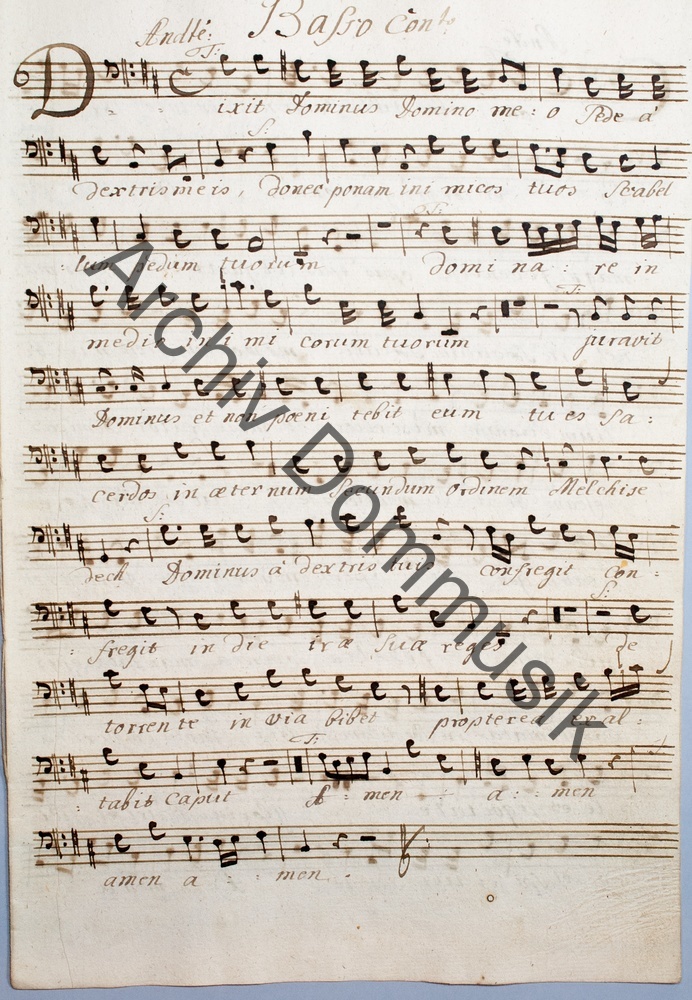 Basso Conto
Andte:
T:
Dixit Dominus Domino me : o Sede à
S:
dextris meis, donec ponam ini micos tuos Scabel
T:
: lum pedum tuorum domi na : re in
T:
medio ini mi corum tuorum juravit
Dominus et non pœni tebit eum tu es Sa :
cerdos in æter num Secundum ordinem Melchise
S:
dech Dominus à dextris tuis confregit con :
S:
: fregit in die iræ suæ reges de
torrente in via bibet propterea ex al :
T:
tabit caput A : men a : men
amen a : men
Archiv Dommusik